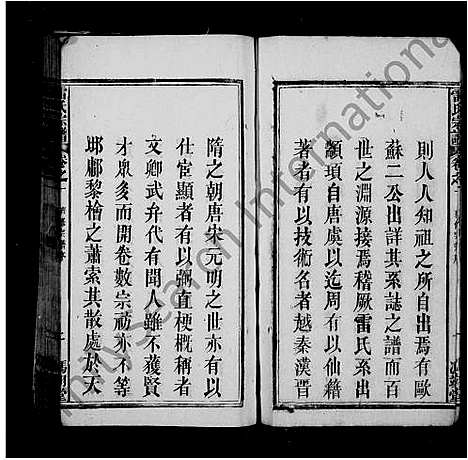 則人人知祖之所自出焉有歐
蘇二公出詳其系誌之譜而百
世之淵源接焉稽厥雷氏系出
顓頊自唐虞以迄周有以仙籍
著者有以技術名者越秦漢晋
隋之朝唐宋元明之世亦有以
仕宦顯者有以弼直梗概稱者
文卿武弁代有聞人雖不獲賢
才眾多而開卷數宗祊亦不等
鄉郿黎檜之蕭索其散處於天